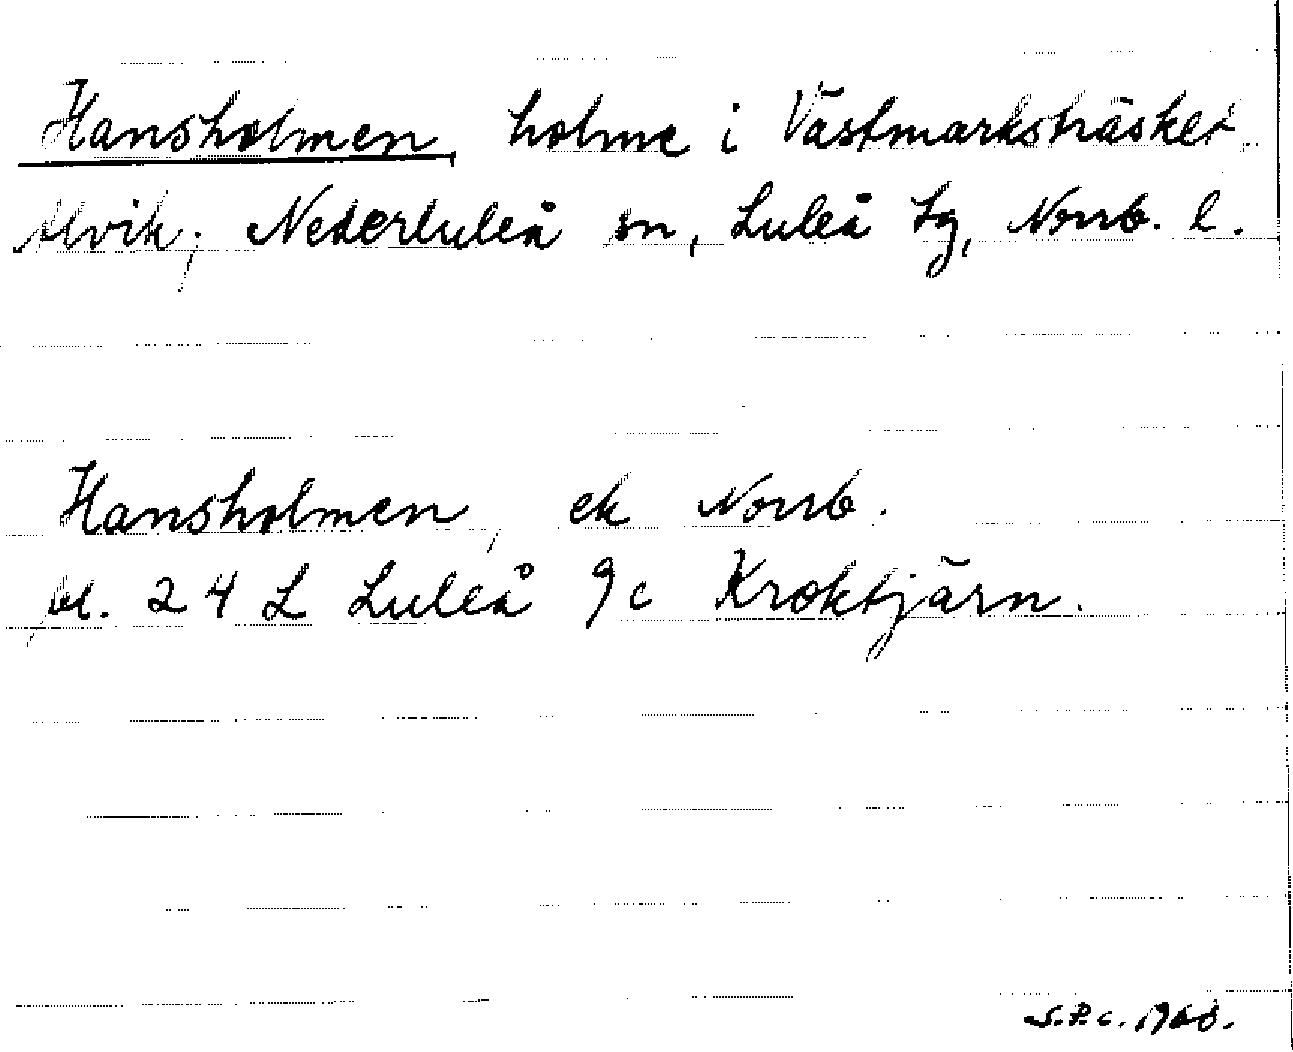 Hansholmen, holme i Västmarksträsket
Alvik, Nederluleå sn, Luleå tg, Norrb. l.
Hansholmen, ek Norrb.
bl. 24 L Luleå 9c Kroktjärn.
S.P.C. 1968.